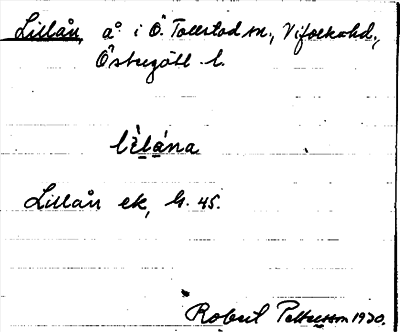 Lillån, å i Ö. Tollstad sn., Vifolka hd.,
Östergötl. l.
lìlána
Lillån ek, G. 45.
Robert Pettersson 1920.